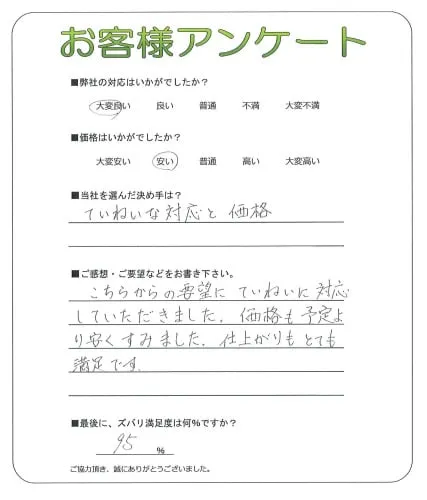 お客様アンケート
■弊社の対応はいかがでしたか?
大変良い 良い 普通 不満 大変不満
■価格はいかがでしたか?
大変安い 安い 普通 高い 大変高い
■当社を選んだ決め手は?
ていねいな対応と価格
■ご感想・ご要望などをお書き下さい。
こちらからの要望にていねいに対応
していただきました。価格も予定よ
り安くすみました。仕上がりもとても
満足です。
■最後に、ズバリ満足度は何%ですか?
95 %
ご協力頂き、誠にありがとうございました。